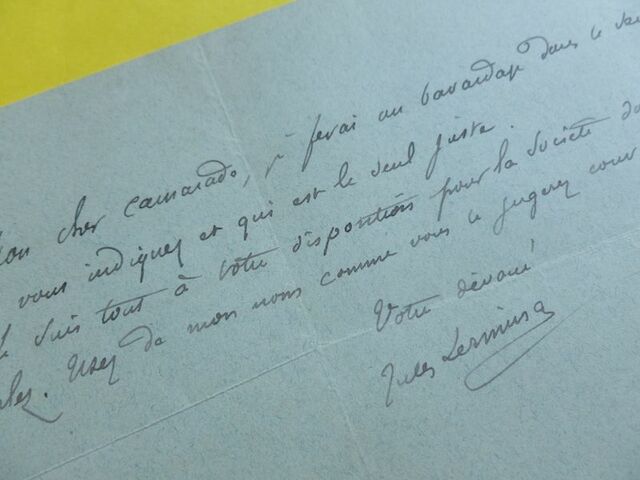 on cher camarade, je ferai un bavardage dans le sen
vous indiquez et qui est le seul juste.
suis tout à votre disposition pour la Société do
lez. Usez de mon nom comme vous le jugerez conv
Votre dévoué
Jules Lermina